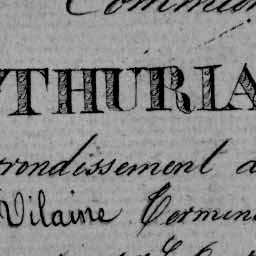 Commun
YTHURIA
rrondissement d
Vilaine Termin